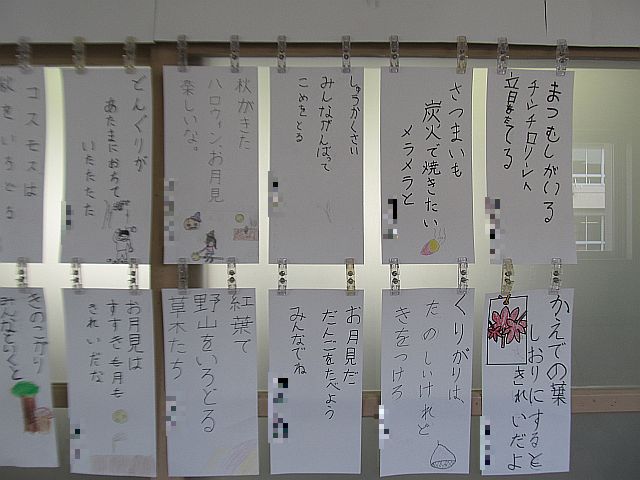 まつむしがいる
チンチロリーレへ
音をたてる
さつまいも
炭火で焼きたい
メラメラと
しゅうかくさい
みんながんばって
こめをとる
秋がきた
ハロウィン、お月見
楽しいな。
どんぐりが
あたまにおちて
いたたたた
コスモスは
秋をいろどる
かえでの葉
しおりにすると
きれいだよ
くりがりは、
たのしいけれど
きをつけろ
お月見だ
だんごをたべよう
みんなでね
紅葉で
野山をいろどる
草木たち
お月見は
すすきも月も
きれいだな
きのこがり
みんなといくと